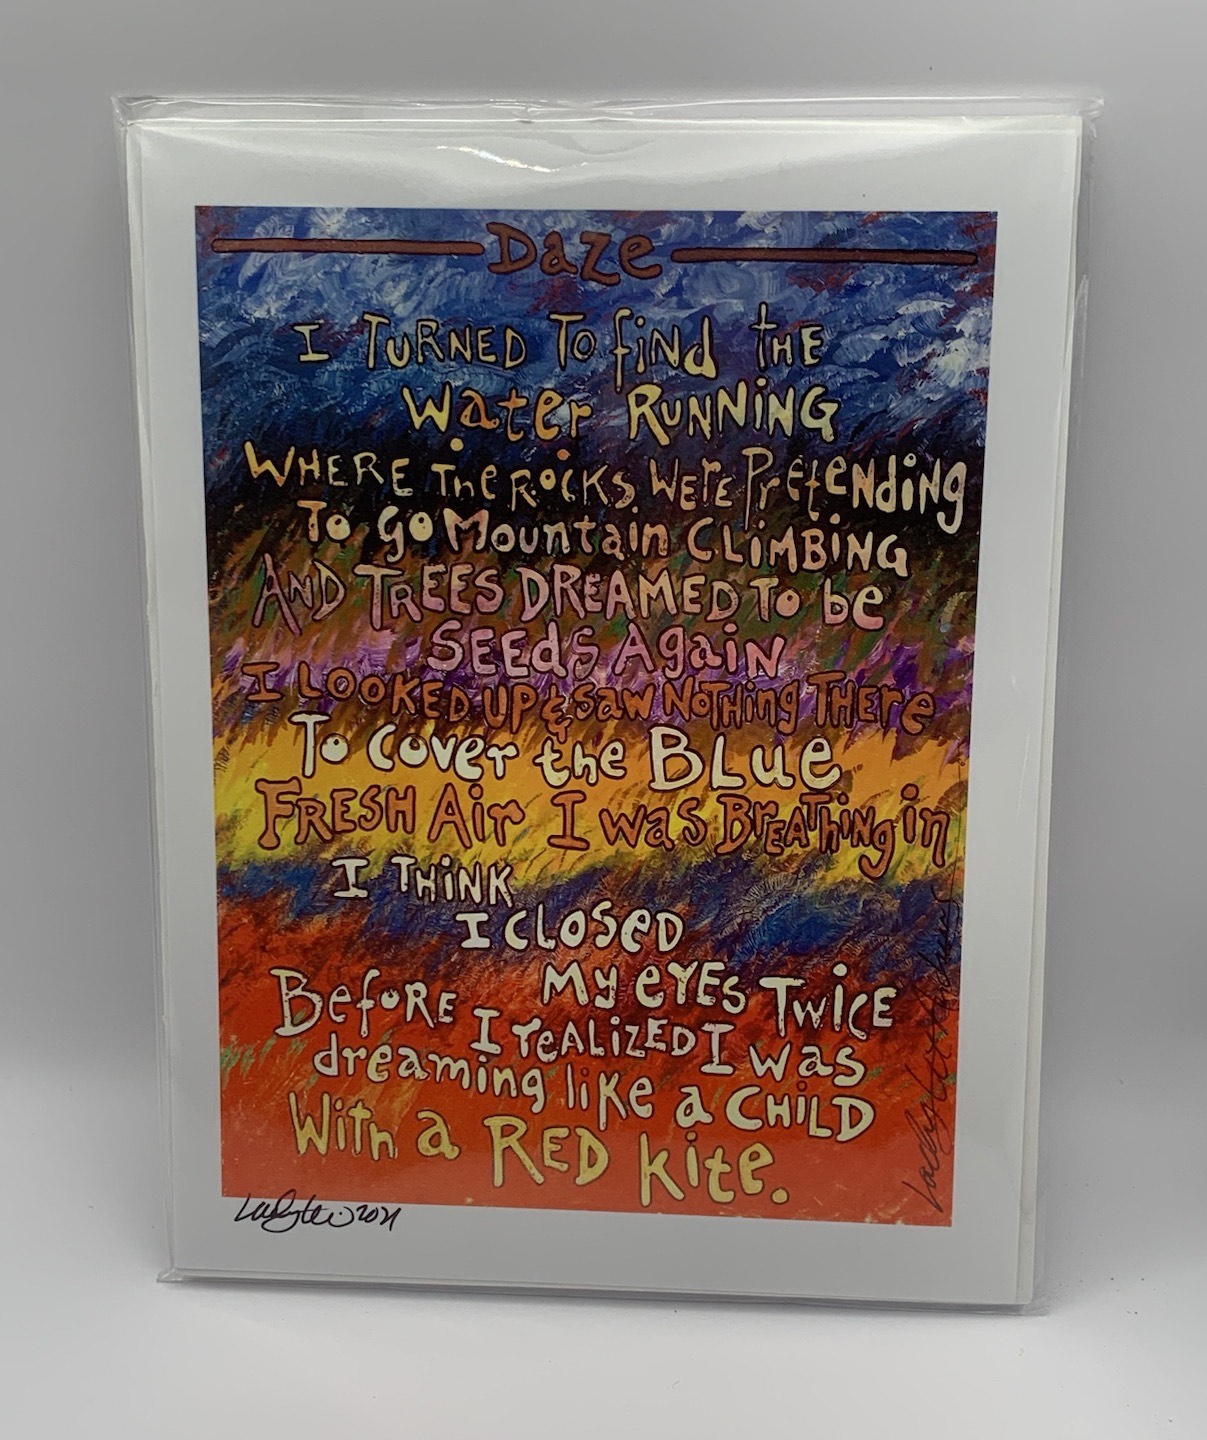 Daze
I TURNED To find THE
Water RUNNING
WHERE The RocKS WerE PretENding
To Go Mountain CLiMBiNG
AND TREES DREAMED To be
SEEdS AgaiN
I LOOKED UP & Saw NoTHing THEre
To Cover the BLue
FRESH Air I was BrEAThiNg in
I THiNK
I CLOSED
My eYES TWiCE
BefoRE I reALiZED I was
dreaming like a CHiLD
With a RED Kite.
2021